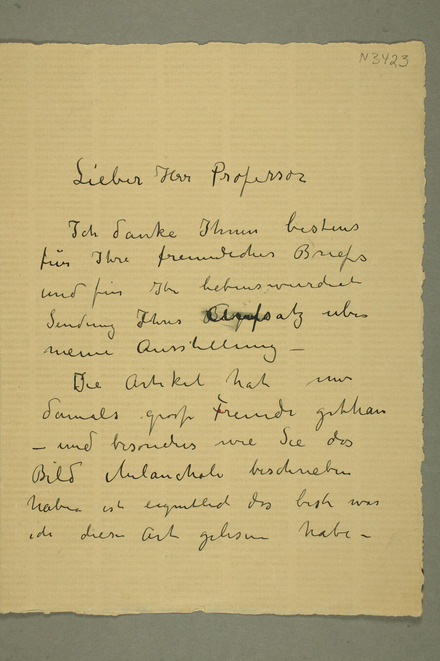 N 3423
Lieber Herr Professor
Ich danke Ihnen bestens
für Ihre freundliches Briefs
und für Ihr liebenswürdiet
Sendung Ihres Aufsatz uber
meine Ausstellung —
Die Artikel hat mir
damals gross Freude gethan
— und besonders wie Sie das
Bild Melancholi beschrieben
haben ist eigentlich das beste was
ich diese Art gelesen habe —